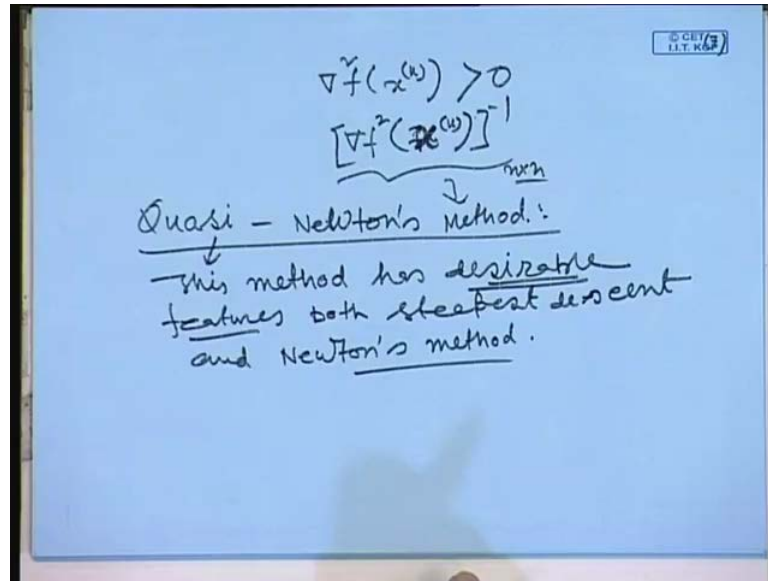 © CET
I.I.T. KGP
(7)
∇²f(x^(k)) > 0
[∇f²(x^(k))]⁻¹
n×n
Quasi - Newton's Method.:
This method has desirable
features both steepest descent
and Newton's method.